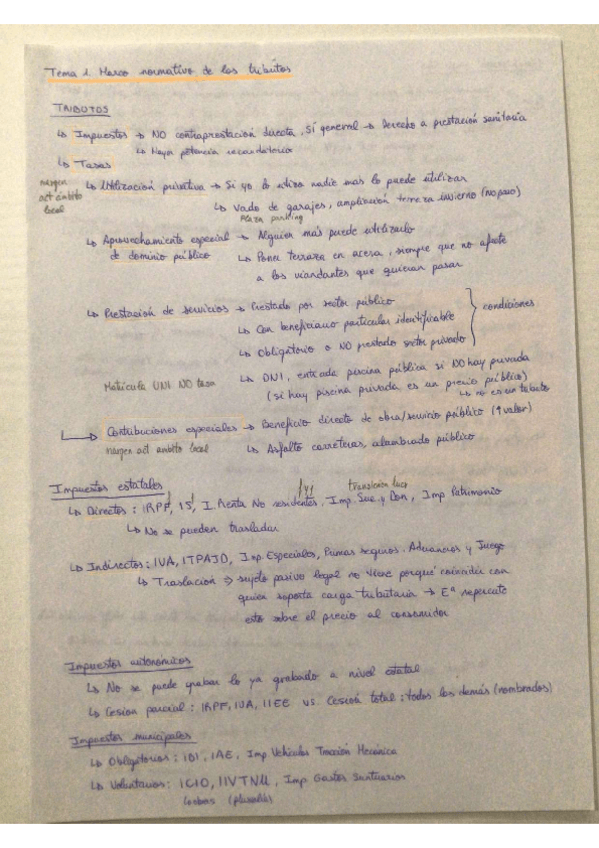 Tema 1. Marco normativo de los tributos
TRIBUTOS
↳ Impuestos → NO contraprestación directa, sí general → Derecho a prestación sanitaria
↳ Mayor potencia recaudatoria
↳ Tasas
margen
act ámbito
local
↳ Utilización privativa → Si yo lo utilizo nadie más lo puede utilizar
↳ Vado de garajes, ampliación terraza invierno (no paso)
Plaza parking
↳ Aprovechamiento especial → Alguien más puede utilizarlo
de dominio público
↳ Poner terraza en acera, siempre que no afecte
a los viandantes que quieran pasar
↳ Prestación de servicios → Prestado por sector público
↳ Con beneficiario particular identificable
↳ Obligatorio o NO prestado sector privado
condiciones
Matrícula UNI NO tasa
↳ DNI, entrada piscina pública si NO hay privada
(si hay piscina privada es un precio público)
↳ no es un tributo
→ Contribuciones especiales → Beneficio directo de obra/servicio público (↑valor)
margen act ámbito local
↳ Asfalto carreteras, alumbrado público
Impuestos estatales
↳ Directos: IRPF, IS, I. Renta No residentes, Imp. Suc y Don, Imp Patrimonio
↳ No se pueden trasladar
↳ Indirectos: IVA, ITPAJD, Imp. Especiales, Primas seguros. Aduaneros y Juego
↳ Traslación ⇒ sujeto pasivo legal no tiene porqué coincidir con
quien soporta carga tributaria → Eª repercute
esto sobre el precio al consumidor
Impuestos autonómicos
↳ No se puede grabar lo ya grabado a nivel estatal
↳ Cesión parcial: IRPF, IVA, IIEE vs. Cesión total: todos los demás (nombrados)
Impuestos municipales
↳ Obligatorios: IBI, IAE, Imp. Vehículos Tracción Mecánica
↳ Voluntarios: ICIO, IIVTNU, Imp Gastos Suntuarios
(plusvalía)